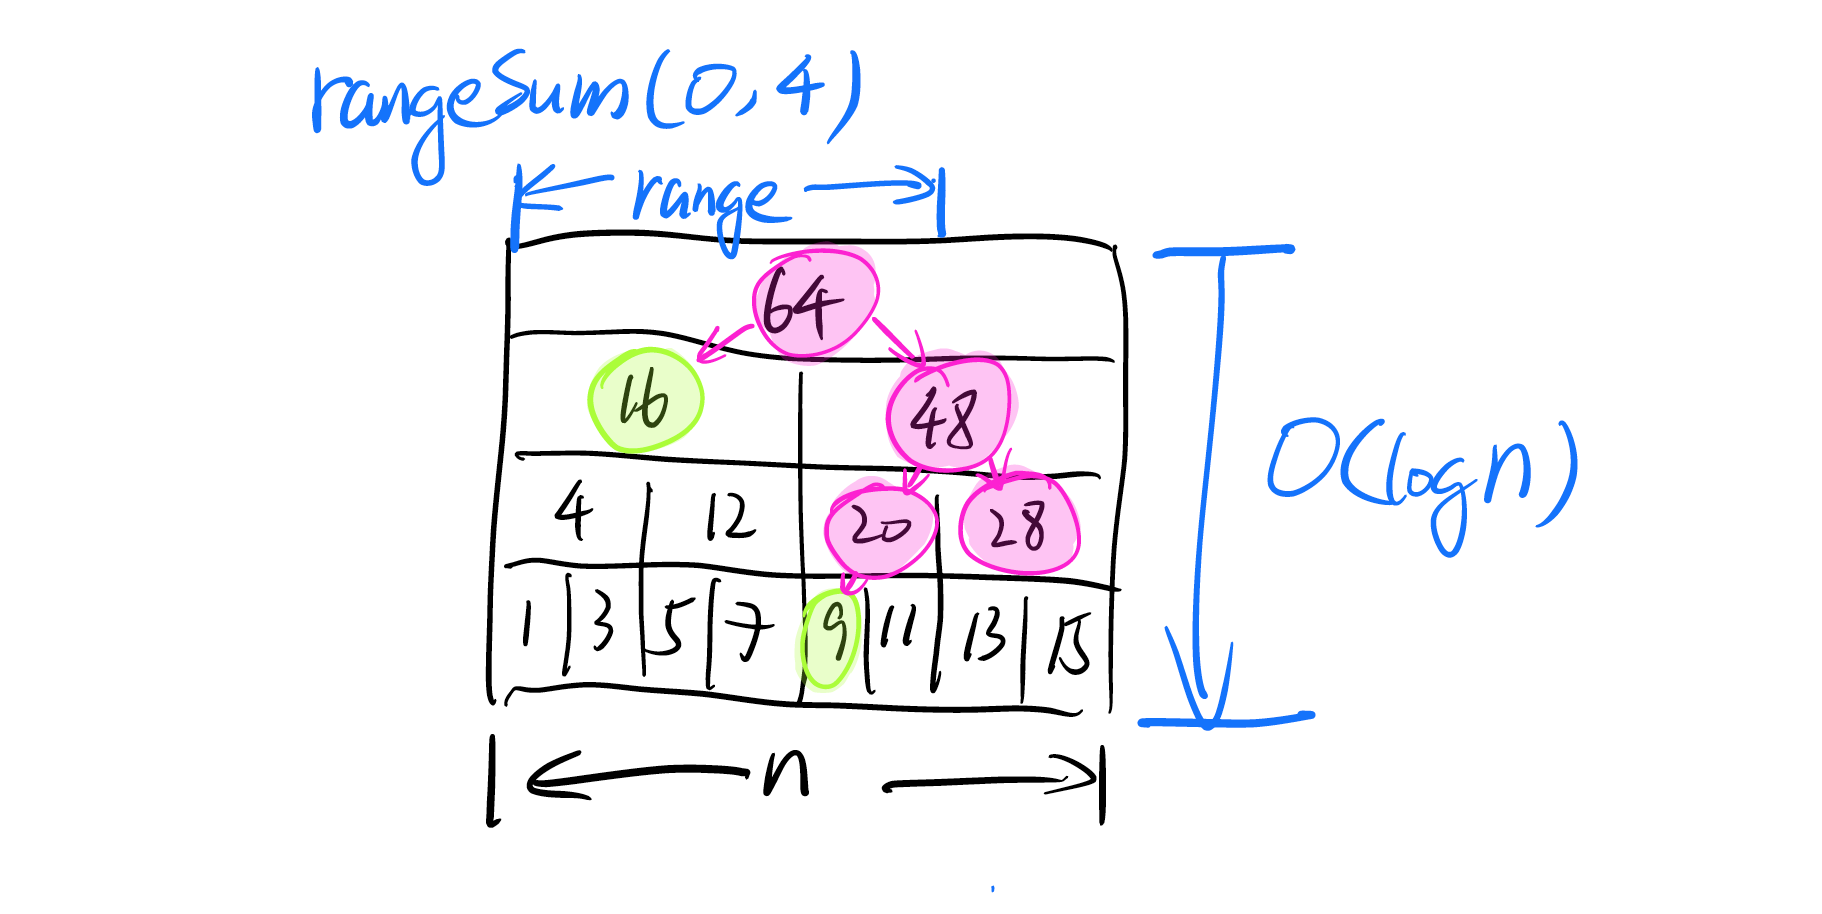 rangeSum(0,4)
range
64
16 48
4 12 20 28
1 3 5 7 9 11 13 15
n
O(logn)